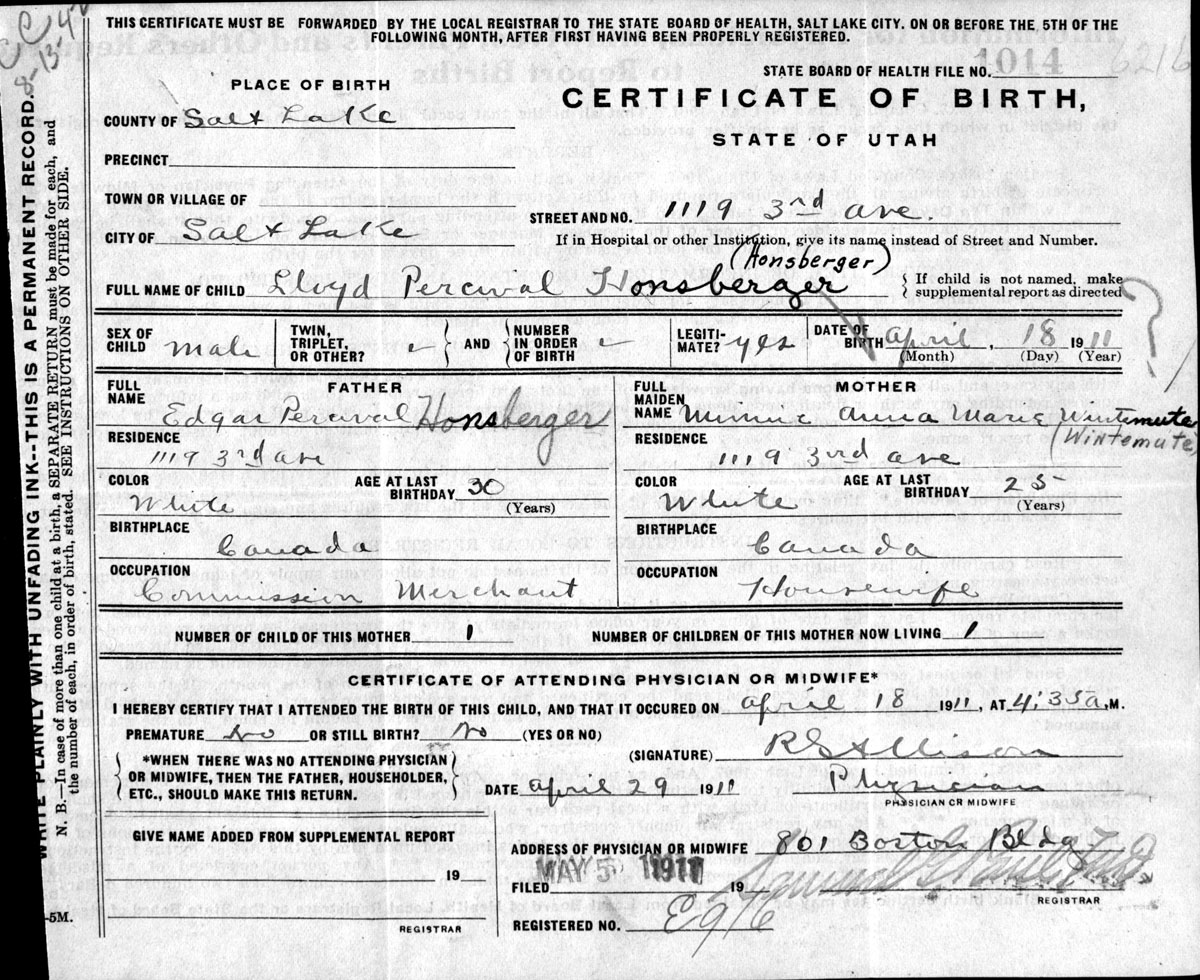 C C 4
8-13-
THIS CERTIFICATE MUST BE FORWARDED BY THE LOCAL REGISTRAR TO THE STATE BOARD OF HEALTH, SALT LAKE CITY, ON OR BEFORE THE 5TH OF THE
FOLLOWING MONTH, AFTER FIRST HAVING BEEN PROPERLY REGISTERED.
STATE BOARD OF HEALTH FILE NO. 1014 6216
PLACE OF BIRTH
CERTIFICATE OF BIRTH,
STATE OF UTAH
COUNTY OF Salt Lake
PRECINCT
TOWN OR VILLAGE OF
STREET AND NO. 1119 3rd ave.
CITY OF Salt Lake
If in Hospital or other Institution, give its name instead of Street and Number.
(Honsberger)
FULL NAME OF CHILD Lloyd Percival Honsberger
{ If child is not named, make
supplemental report as directed
?
SEX OF CHILD male
TWIN, TRIPLET, OR OTHER?
} AND {
NUMBER IN ORDER OF BIRTH
LEGITIMATE? yes
DATE OF BIRTH april, 18 1911
(Month) (Day) (Year)
FATHER
FULL NAME Edgar Percival Honsberger
RESIDENCE
1119 3rd ave
COLOR White
AGE AT LAST BIRTHDAY 30
(Years)
BIRTHPLACE
Canada
OCCUPATION
Commission Merchant
MOTHER
FULL MAIDEN NAME Minnie Anna Marie Wintemute
(Wintemute)
RESIDENCE
1119 3rd ave
COLOR White
AGE AT LAST BIRTHDAY 25
(Years)
BIRTHPLACE
Canada
OCCUPATION
Housewife
NUMBER OF CHILD OF THIS MOTHER 1 NUMBER OF CHILDREN OF THIS MOTHER NOW LIVING 1
CERTIFICATE OF ATTENDING PHYSICIAN OR MIDWIFE*
I HEREBY CERTIFY THAT I ATTENDED THE BIRTH OF THIS CHILD, AND THAT IT OCCURED ON april 18 1911, AT 4:35 a.M.
PREMATURE No OR STILL BIRTH? No (YES OR NO)
(SIGNATURE) R S Allison
*WHEN THERE WAS NO ATTENDING PHYSICIAN
OR MIDWIFE, THEN THE FATHER, HOUSEHOLDER,
ETC., SHOULD MAKE THIS RETURN.
DATE april 29 1911 Physician
PHYSICIAN OR MIDWIFE
GIVE NAME ADDED FROM SUPPLEMENTAL REPORT
19
REGISTRAR
ADDRESS OF PHYSICIAN OR MIDWIFE 801 Boston Bldg
FILED MAY 5 1911 19
REGISTRAR
REGISTERED NO. E916
WRITE PLAINLY WITH UNFADING INK--THIS IS A PERMANENT RECORD.
N. B.—In case of more than one child at a birth, a SEPARATE RETURN must be made for each, and
the number of each, in order of birth, stated. SEE INSTRUCTIONS ON OTHER SIDE.
-5M.